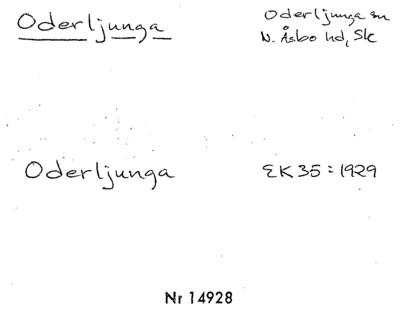 Oderljunga
Oderljunga sn
N. Åsbo hd, Sk
Oderljunga
EK 35 = 1929
Nr 14928